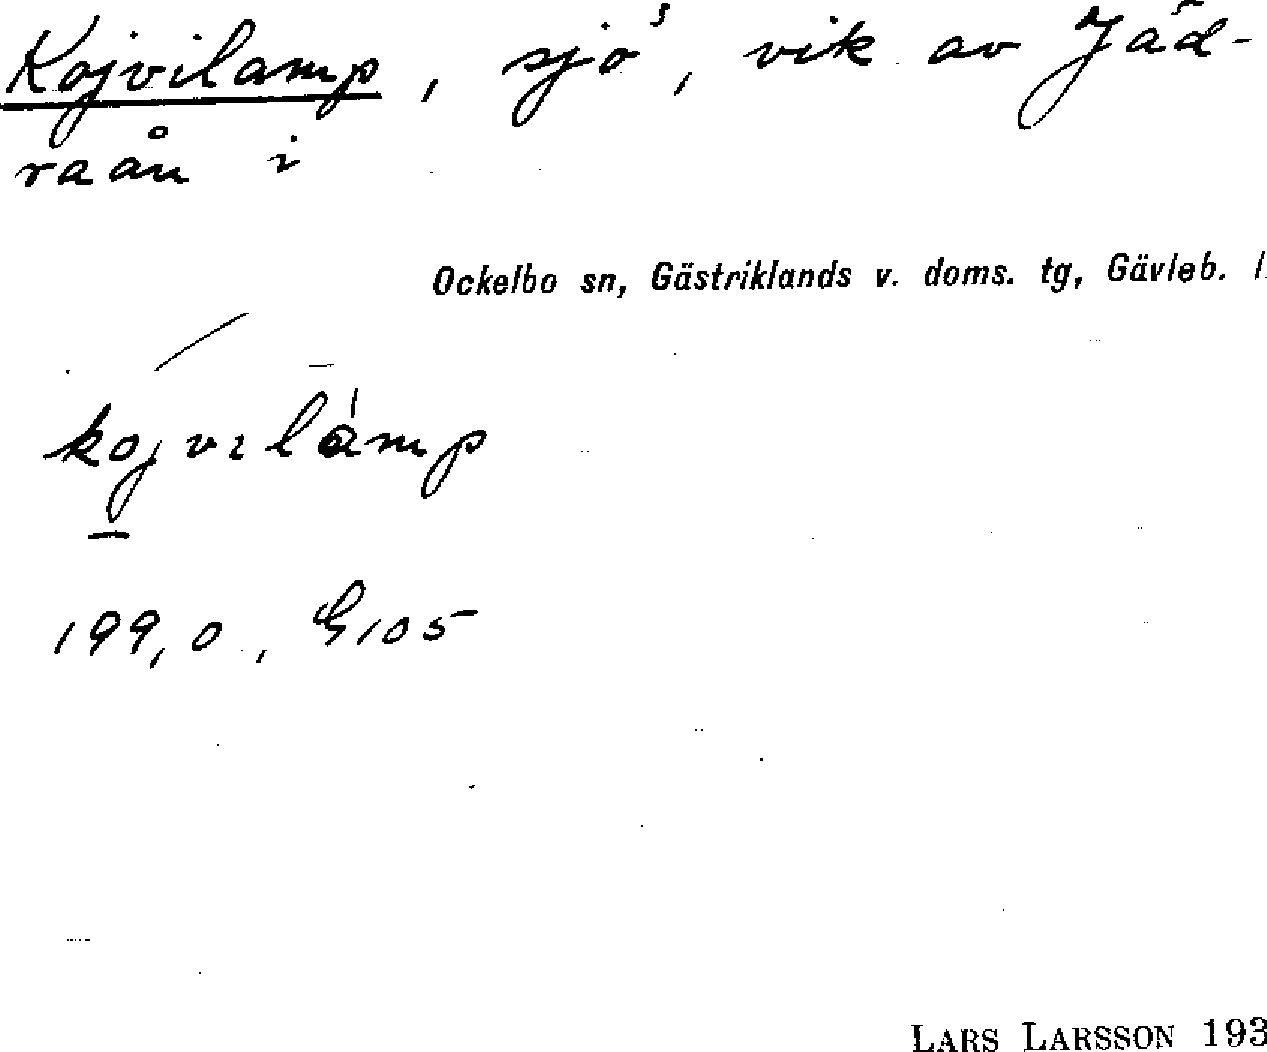 Kojvilamp, sjö, vik av Jäd-
raån i
Ockelbo sn, Gästriklands v. doms. tg, Gävleb. l
kojvılámp
199,0., G105
LARS LARSSON 193